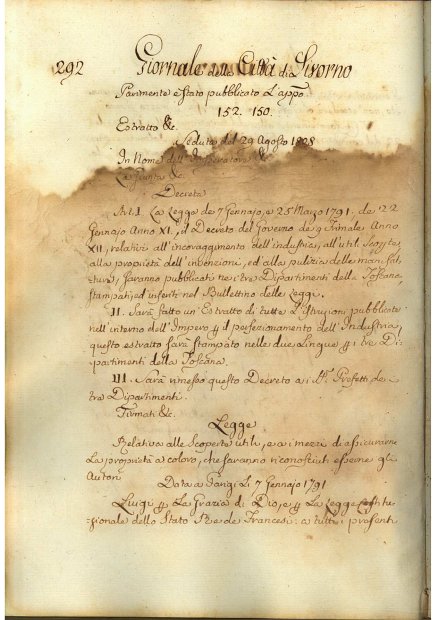 292 Giornale della Città di Livorno
Parimente è stato pubblicato L'appo
152. 150.
Estratto &c.
Seduta del 29 Agosto 1808
In Nome dell' Imperatore &c.
La Giunta &c.
Decreta
Art. I. La Legge de 7 Gennajo, e 25 Marzo 1791. de 12
Gennajo Anno XI, il Decreto del Governo de 9 Frimale Anno
XII, relativi all'incoraggimento dell'industria, all'utili scoperte,
alla proprietà dell'invenzioni, ed alla pulizia delle manifat-
ture, saranno pubblicati ne i tre Dipartimenti della Toscana,
stampati, ed inseriti nel Bullettino delle Leggi.
II. Sarà fatto un' Estratto di tutte L'Istruzioni pubblicate
nell'interno dell'Impero il perfezionamento dell'Industria,
questo estratto sarà stampato nelle due Lingue i tre Di-
partimenti della Toscana.
III. Sarà rimesso questo Decreto a i Prefetti de
tre Dipartimenti.
Firmati &c.
Legge
Relativa alle Scoperte utili, e a i mezzi di assicurarne
La proprietà a coloro, che saranno riconosciuti esserne gli
Autori
Data a Parigi Li 7 Gennajo 1791
Luigi La Grazia di Dio, e La Legge Costitu-
zionale dello Stato Re de Francesi: a tutti i presenti